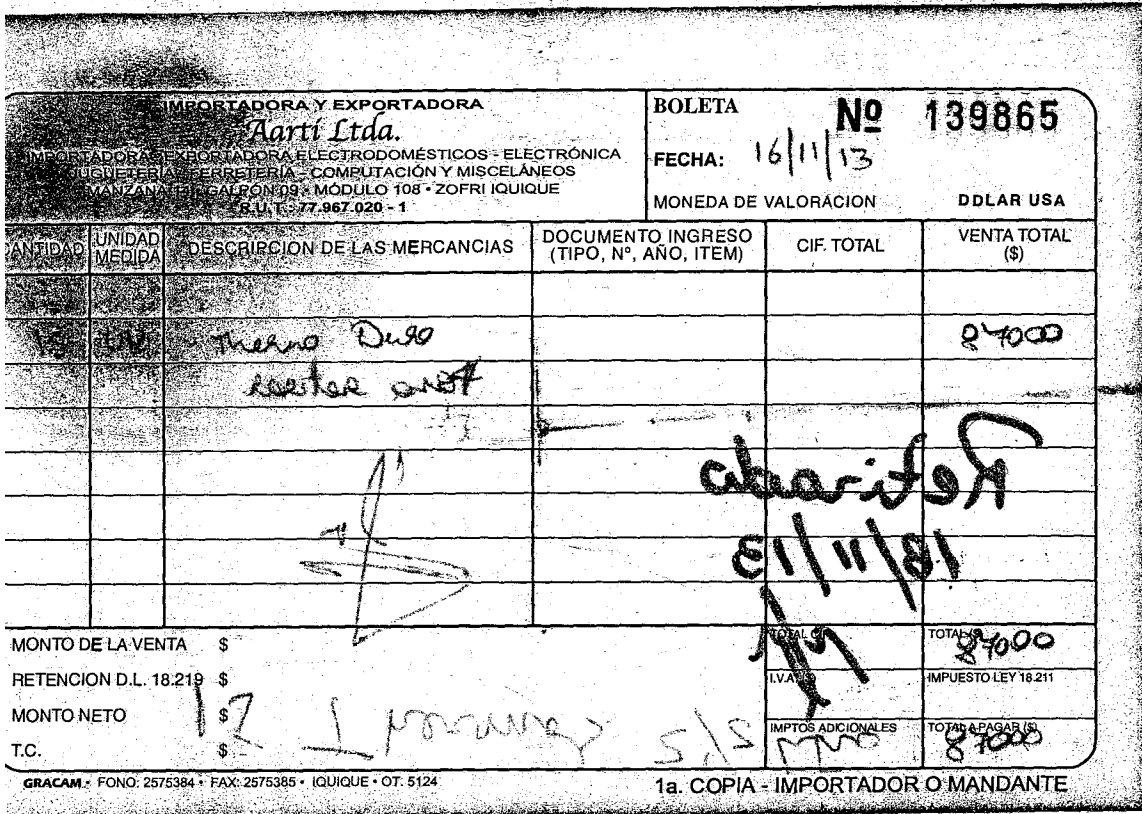 IMPORTADORA Y EXPORTADORA
Aarti Ltda.
IMPORTADORA - EXPORTADORA ELECTRODOMÉSTICOS - ELECTRÓNICA
JUGUETERIA - FERRETERÍA - COMPUTACIÓN Y MISCELÁNEOS
MANZANA GALPÓN 09 • MÓDULO 108 • ZOFRI IQUIQUE
R.U.T.: 77.967.020 - 1
BOLETA Nº 139865
FECHA: 16/11/13
MONEDA DE VALORACION DDLAR USA
CANTIDAD UNIDAD MEDIDA DESCRIPCION DE LAS MERCANCIAS DOCUMENTO INGRESO (TIPO, Nº, AÑO, ITEM) CIF. TOTAL VENTA TOTAL ($)
Thermo Duro 87000
Retirado
18/11/13
MONTO DE LA VENTA $
RETENCION D.L. 18.219 $
MONTO NETO $
T.C. $
TOTAL
I.V.A.
IMPTOS ADICIONALES
TOTAL ($) 87000
IMPUESTO LEY 18.211
TOTAL A PAGAR ($) 87000
GRACAM • FONO: 2575384 • FAX: 2575385 • IQUIQUE • OT. 5124
1a. COPIA - IMPORTADOR O MANDANTE